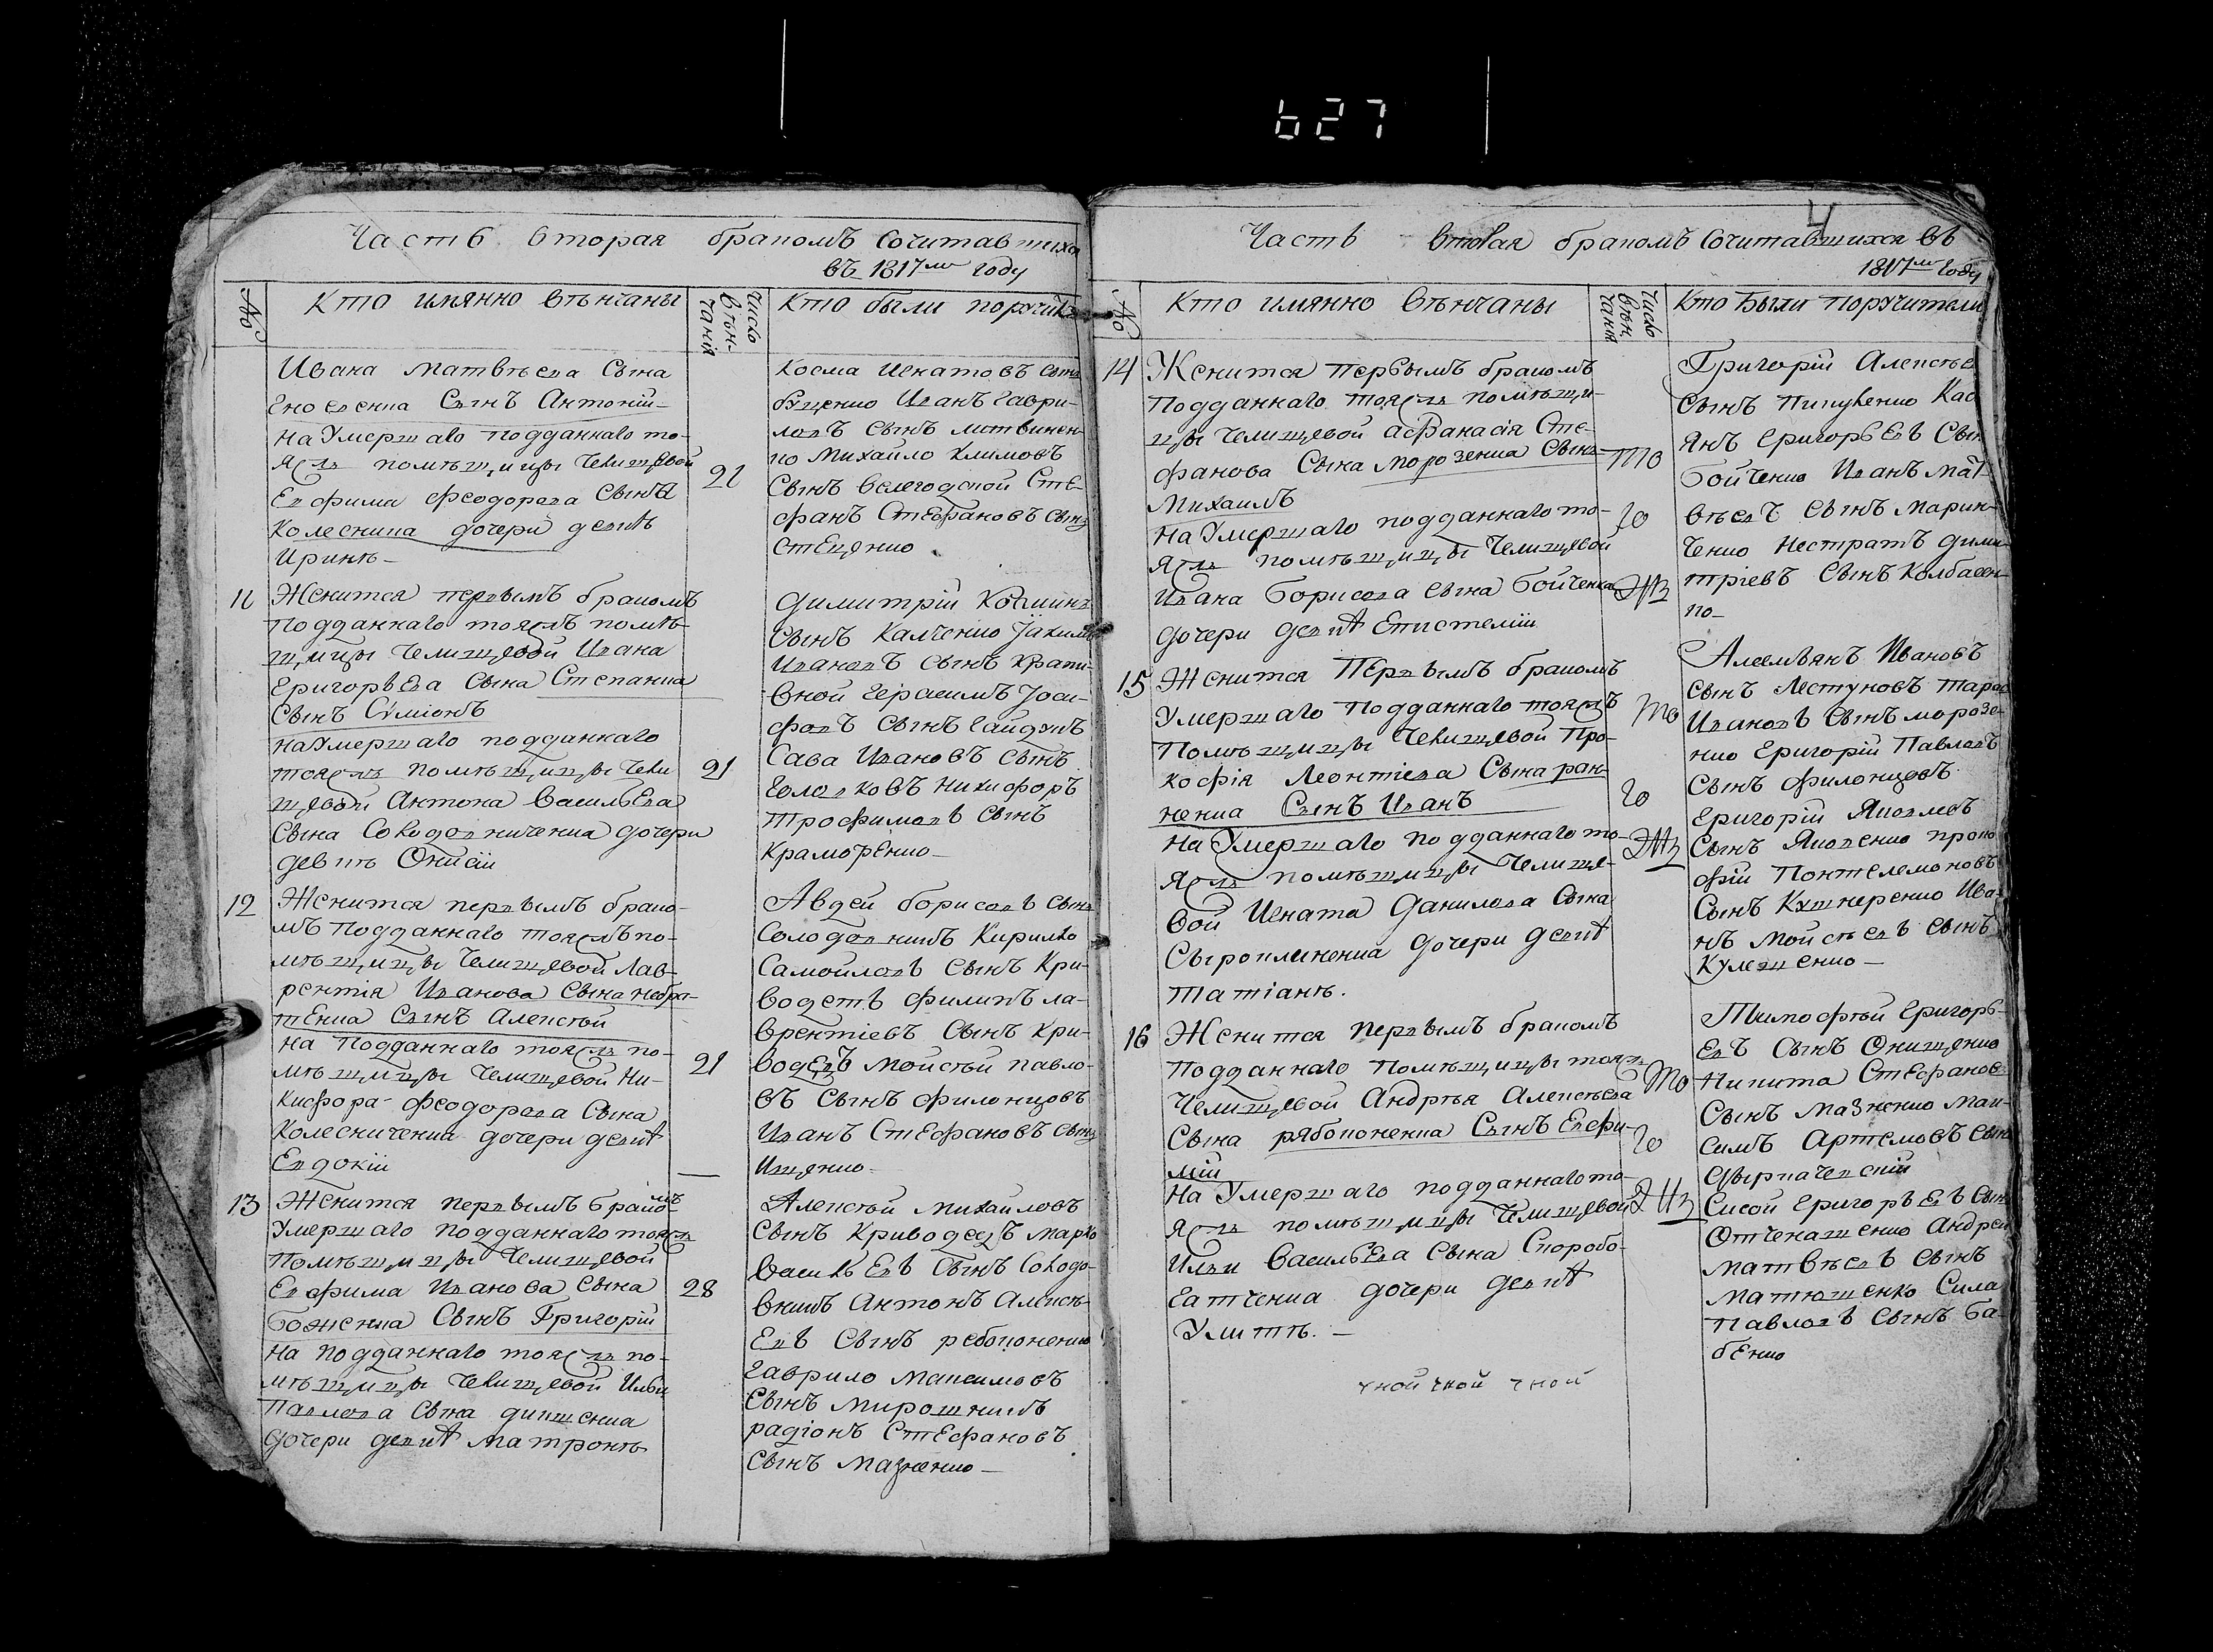 627
Часть вторая бракомъ Сочитавшихся
въ 1817мъ году
№
Кто имянно вѣнчаны
число вѣн-
чанія
Кто были поручит
Ивана Матвѣева Сына
Сынъ Антоній
На Умершаго подданнаго то-
яжъ помѣщицы Челищевой
Евфима Феодорова Сына
Колесника дочери девкѣ
Иринѣ
21
Косма Игнатовъ сынъ
Иванъ Гаври-
ловъ сынъ Литвинен-
ко Михайло Климовъ
Сынъ Велегодской Сте-
фанъ Стефановъ сынъ
Стеценко
11
Женится первымъ бракомъ
Подданнаго тояжъ помѣ-
щицы Челищевой Ивана
Григорьева Сына Степанка
Сынъ Сѵміонъ
На Умершаго подданнаго
тояжъ помѣщицы Чели
щевой Антона Васильева
Сына Солодовниченка дочери
девкѣ Онисіи
21
Димитрій Косминъ
Сынъ Калченко Іакимъ
Ивановъ Сынъ Крапи-
вной Герасимъ Іоси-
фовъ Сынъ Гайдукъ
Сава Ивановъ Сынъ
Головковъ Никифоръ
Трофимовъ Сынъ
Краморенко
12
Женится первымъ брако-
мъ Подданнаго тояжъ по-
мѣщицы Челищевой Лав-
рентія Иванова Сына Небра-
тенка Сынъ Алексѣй
На Подданнаго тояжъ по-
мѣщицы Челищевой Ни-
кифора Феодорова Сына
Колесниченка дочери девкѣ
Евдокіи
21
Авдей Борисовъ сынъ
Солодовникъ Кирилко
Самойловъ Сынъ Кри-
водетъ Филипъ Ла-
врентіевъ Сынъ Кри-
водедъ Мойсѣй Павло-
въ Сынъ Филонцовъ
Иванъ Стефановъ сынъ
Ищенко
13
Женится первымъ бракомъ
Умершаго подданнаго тояжъ
Помѣщицы Челищевой
Евфима Иванова Сына
Боженка Сынъ Григорій
На подданнаго тояжъ по-
мѣщицы Челищевой Ильи
Павлова Сына Дикшенка
Дочери девкѣ Матронѣ
28
Алексѣй Михайловъ
Сынъ Криводедъ Марко
Васильевъ Сынъ Солодо-
вникъ Антонъ Алексѣ-
евъ Сынъ Ребоконенко
Гаврило Максимовъ
Сынъ Мирошникъ
Радіонъ Стефановъ
Сынъ Мазненко
4
Часть втовая бракомъ Сочитавшихся въ
1817мъ Году
№
Кто имянно вѣнчаны
Число вѣн-
чанія
Кто Были поручители
14
Женится первымъ бракомъ
Подданнаго тояжъ помѣщи-
цы Челищевой Афанасія Сте-
фанова Сына Морозенка Сынъ
Михаилъ
На Умершаго подданнаго то-
яжъ помѣщицы Челищевой
Ивана Борисова Сына Бойченка
дочери девкѣ Епистеміи
То
го
жъ
Григорій Алексѣев
Сынъ Пипченко Кас
янъ Григорьевъ Сын
Бойченко Иванъ Мат-
вѣевъ Сынъ Марин-
ченко Нестратъ Дими-
тріевъ Сынъ Колбасен-
ко
15
Женится Первымъ бракомъ
Умершаго подданнаго тояжъ
Помѣщицы Челищевой Про-
кофія Леонтіева Сына Ран-
ненка Сынъ Иванъ
На Умершаго подданнаго то-
яжъ помѣщицы Челище-
вой Игната Данилова Сына
Сыроплиненка дочери девкѣ
Татіанѣ.
То
го
жъ
Алемьянъ Ивановъ
Сынъ Лестуновъ Тарас
Ивановъ Сынъ Морозе-
нко Григорій Павловъ
Сынъ Филонцовъ
Григорій Яковлевъ
Сынъ Яковенко Проко
фій Понтелемоновъ
Сынъ Кушнеренко Ива-
нъ Мойсѣевъ Сынъ
Кулешенко
16
Женится первымъ бракомъ
Подданнаго помѣщицы тояжъ
Челищевой Андрѣя Алексѣева
Сына Рябоконенка Сынъ Евфи-
мій
На Умершаго подданнаго то-
яжъ помѣщицы Челищевой
Ильи Васильева Сына Скоробо-
гатченка дочери девкѣ
Улитѣ.
То
го
жъ
Тимофѣй Григорь-
евъ Сынъ Онищенко
Никита Стефановъ
Сынъ Мазненко Мак-
симъ Артемовъ сынъ
Сисой Григорьевъ Сын
Отченашенко Андрей
Матвѣевъ Сынъ
Матюшенко Сила
Павловъ Сынъ Ба-
бенко
чной чной чной